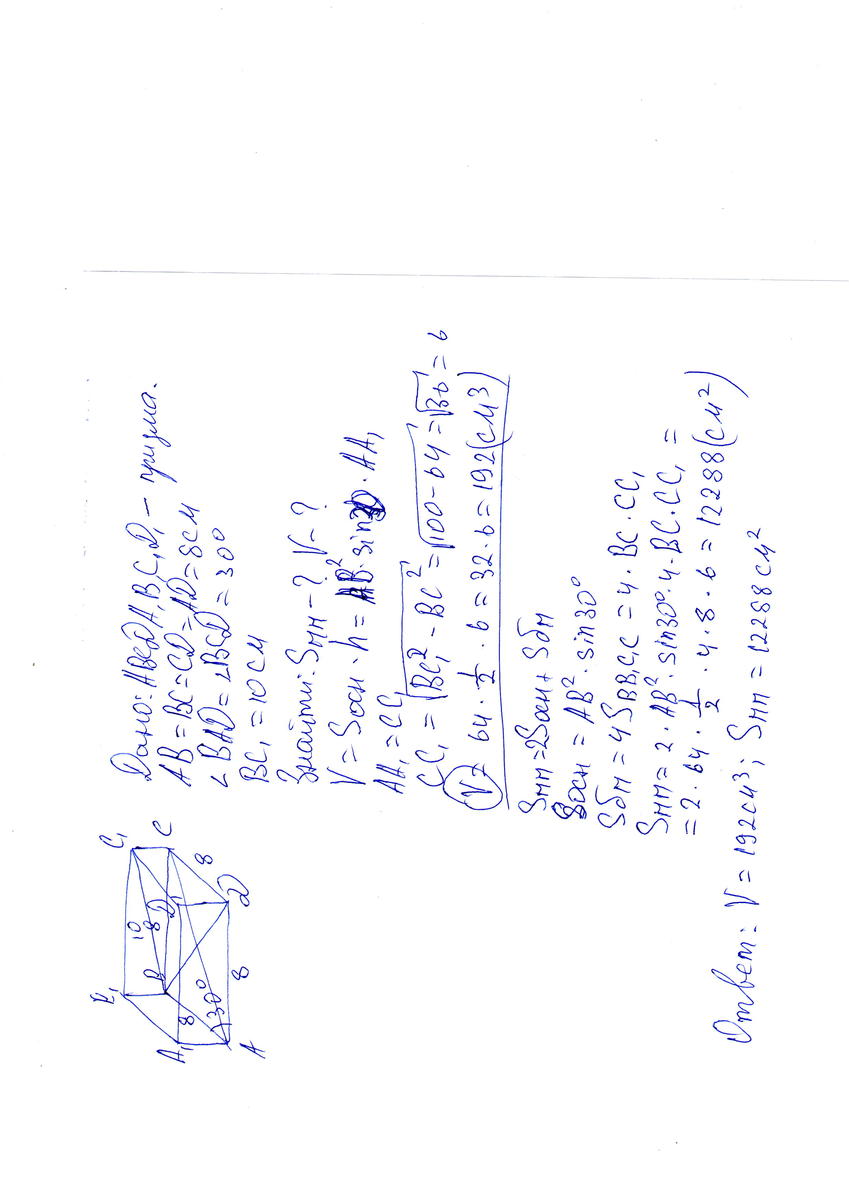 Дано: ABCDA₁B₁C₁D₁ – призма.
AB = BC = CD = AD = 8см
∠BAD = ∠BCD = 30°
BC₁ = 10 см
Знайти: Sпп – ? V – ?
V = Sосн · h = AB² · sin30 · AA₁
AA₁ = CC₁
CC₁ = √BC₁² – BC² = √100 – 64 = √36 = 6
V = 64 · 1/2 · 6 = 32 · 6 = 192 (см³)
Sпп = 2Sосн + Sбп
Sосн = AB² · sin30°
Sбп = 4S BB₁C₁C = 4 · BC · CC₁
Sпп = 2 · AB² · sin30° · 4 · BC · CC₁ =
= 2 · 64 · 1/2 · 4 · 8 · 6 = 12288 (см²)
Ответ: V = 192см³; Sпп = 12288 см²
B₁
C₁
10
B
8
D₁
C
A₁
8
30°
8
A
8
D